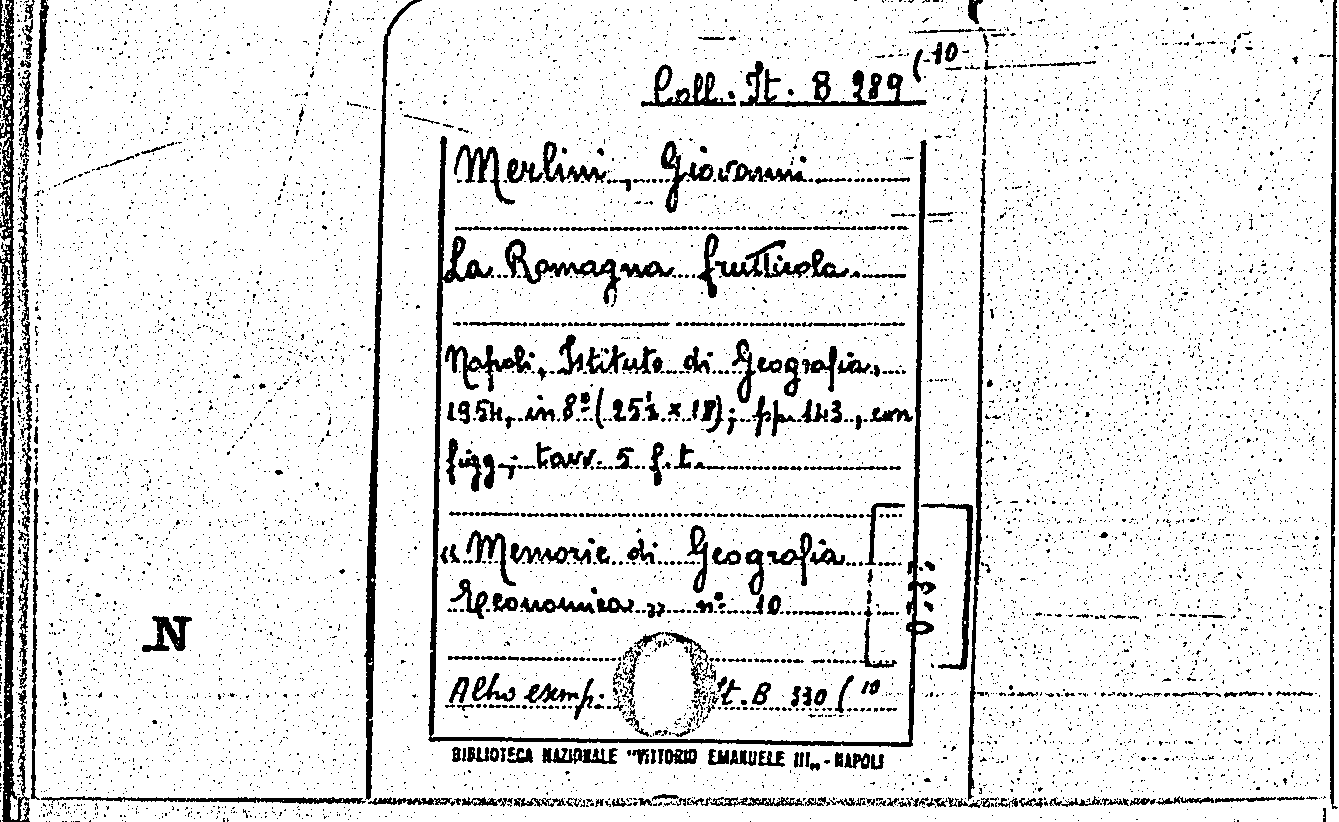 Coll. It. B 289 (10
Merlini, Giovanni
La Romagna frutticola.
Napoli, Istituto di Geografia,
1954, in 8º (25½ x 18); pp. 143, con
figg.; tavv. 5 f.t.
« Memorie di Geografia
Economica » nº 10
O.3.
N
Altro esemp. It. B 330 (10
BIBLIOTECA NAZIONALE "VITTORIO EMANUELE III„ - NAPOLI